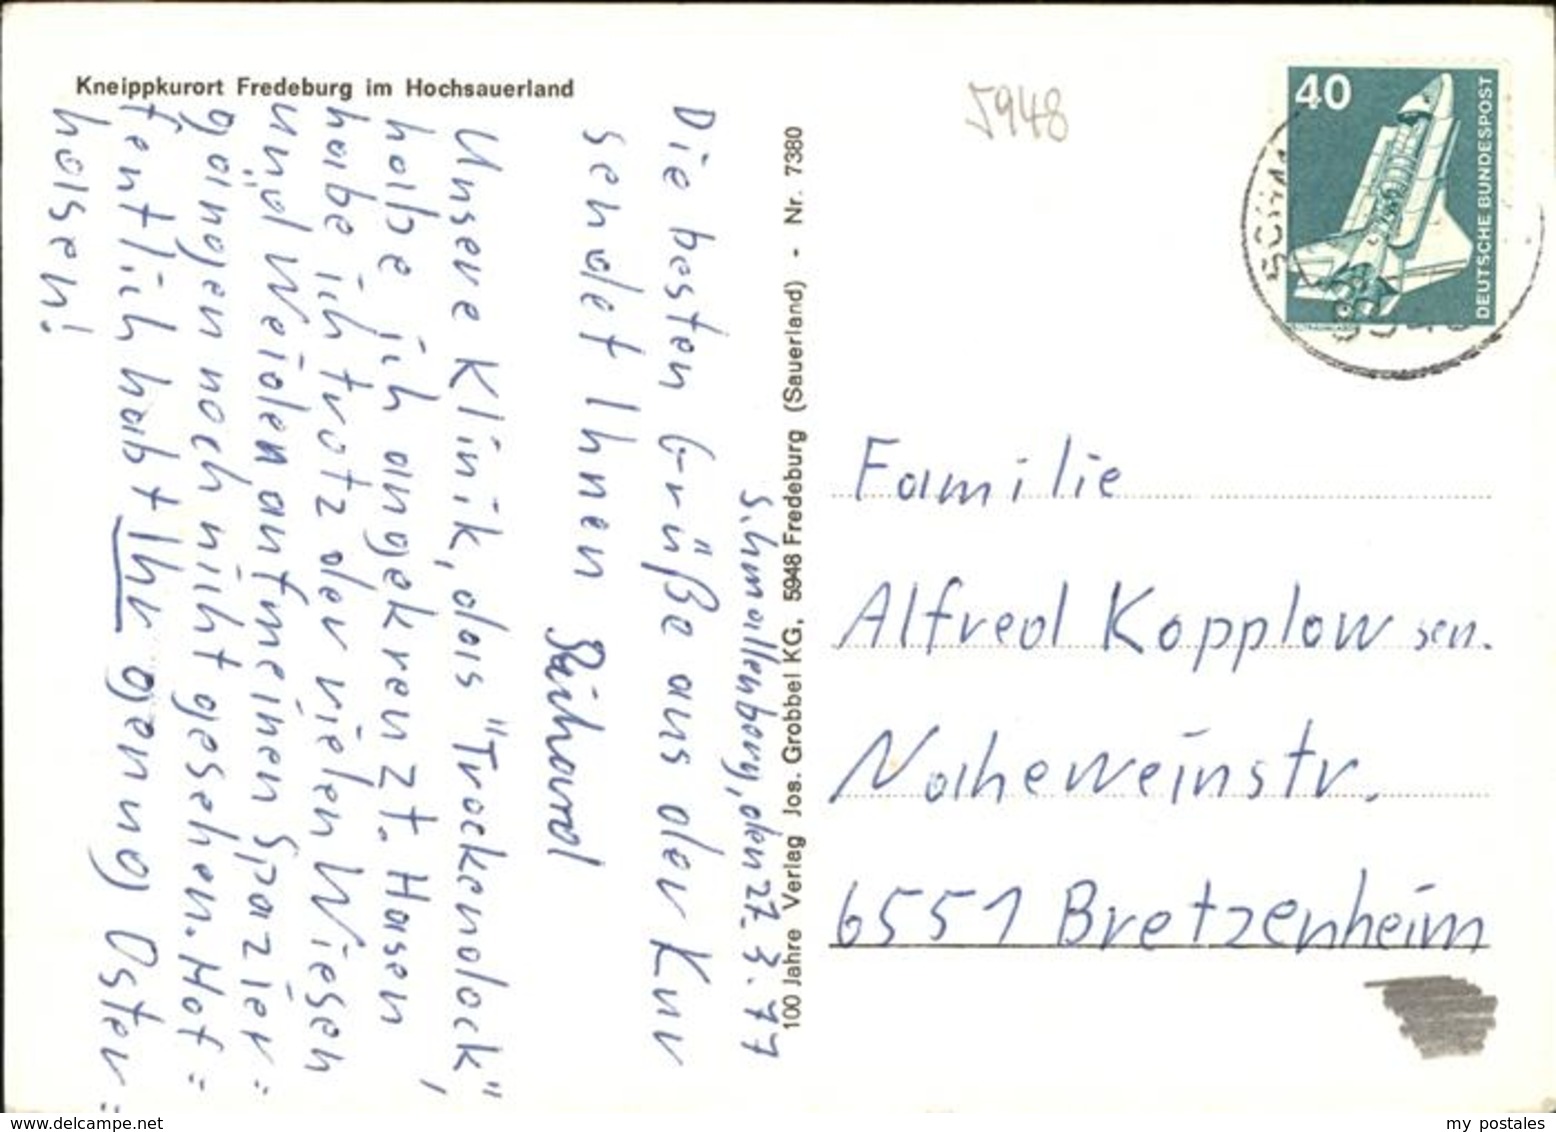 Kneippkurort Fredeburg im Hochsauerland
5948
40
DEUTSCHE BUNDESPOST
100 Jahre Verlag Jos. Grobbel KG, 5948 Fredeburg (Sauerland) - Nr. 7380
Schmallenberg, den 27. 3. 77
Die besten Grüße aus der Kur
sendet Ihnen Richard
Unsere Klinik, das "Trockendock",
habe ich angekreuzt. Hasen
habe ich trotz der vielen Wiesen
und Weiden auf meinen Spazier=
gängen noch nicht gesehen. Hof=
fentlich habt Ihr genug Oster=
hasen!
Familie
Alfred Kopplow sen.
Naheweinstr.
6551 Bretzenheim
www.delcampe.net
my postales